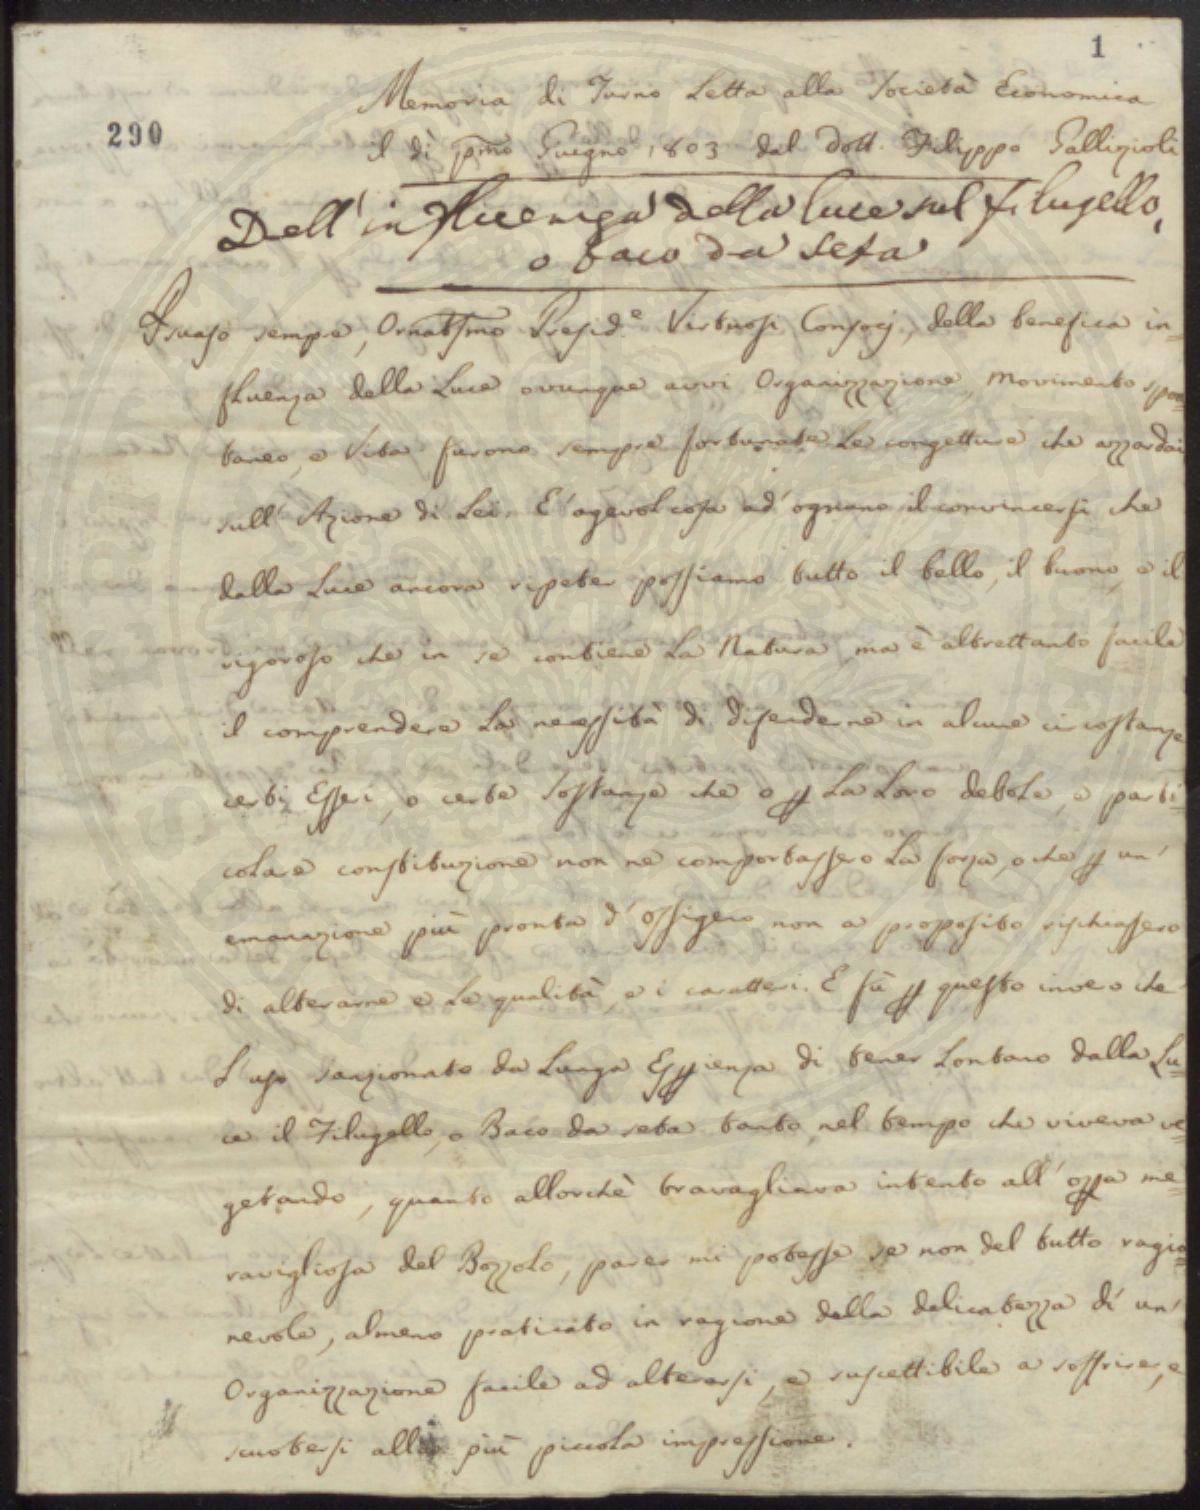 1
Memoria di Turno Letta alla Società Economica
290
il dì pmo Giugno 1803 dal Dott. Filippo Gallizioli
Dell'influenza della luce sul Filugello,
o baco da seta
Psuaso sempre, Ornatsmo Presid.e Virtuosi Consocj, della benefica in-
fluenza della Luce ovunque avvi Organizzazione, Movimento spon-
taneo, e Vita furono sempre fortunate Le congetture che azzardai
sull'Azione di Lei. E' agevol cosa ad' ognuno il convincersi che
dalla Luce ancora ripeter possiamo tutto il bello, il buono, e il
vigoroso che in se contiene La Natura, ma è altrettanto facile
il comprendere La necessità di difenderne in alcune circostanze
certi Esseri, o certe Sostanze che o p La Loro debole, e parti-
colare constituzione non ne comportassero La forza, o che p un'
emanazione più pronta d'ossigeno non a proposito rischiassero
di alterarne e Le qualità, e i caratteri. E fù p questo invero che
L'uso sanzionato da Lunga Espienza di tener Lontano dalla Lu-
ce il Filugello, o Baco da seta tanto nel tempo che viveva ve-
getando, quanto allorchè travagliava intento all'oppa me-
ravigliosa del Bozzolo, parer mi potesse se non del tutto ragio-
nevole, almeno praticato in ragione della delicatezza di un'
Organizzazione facile ad alterarsi, e suscettibile a soffrire, e
scuotersi alla più piccola impressione.